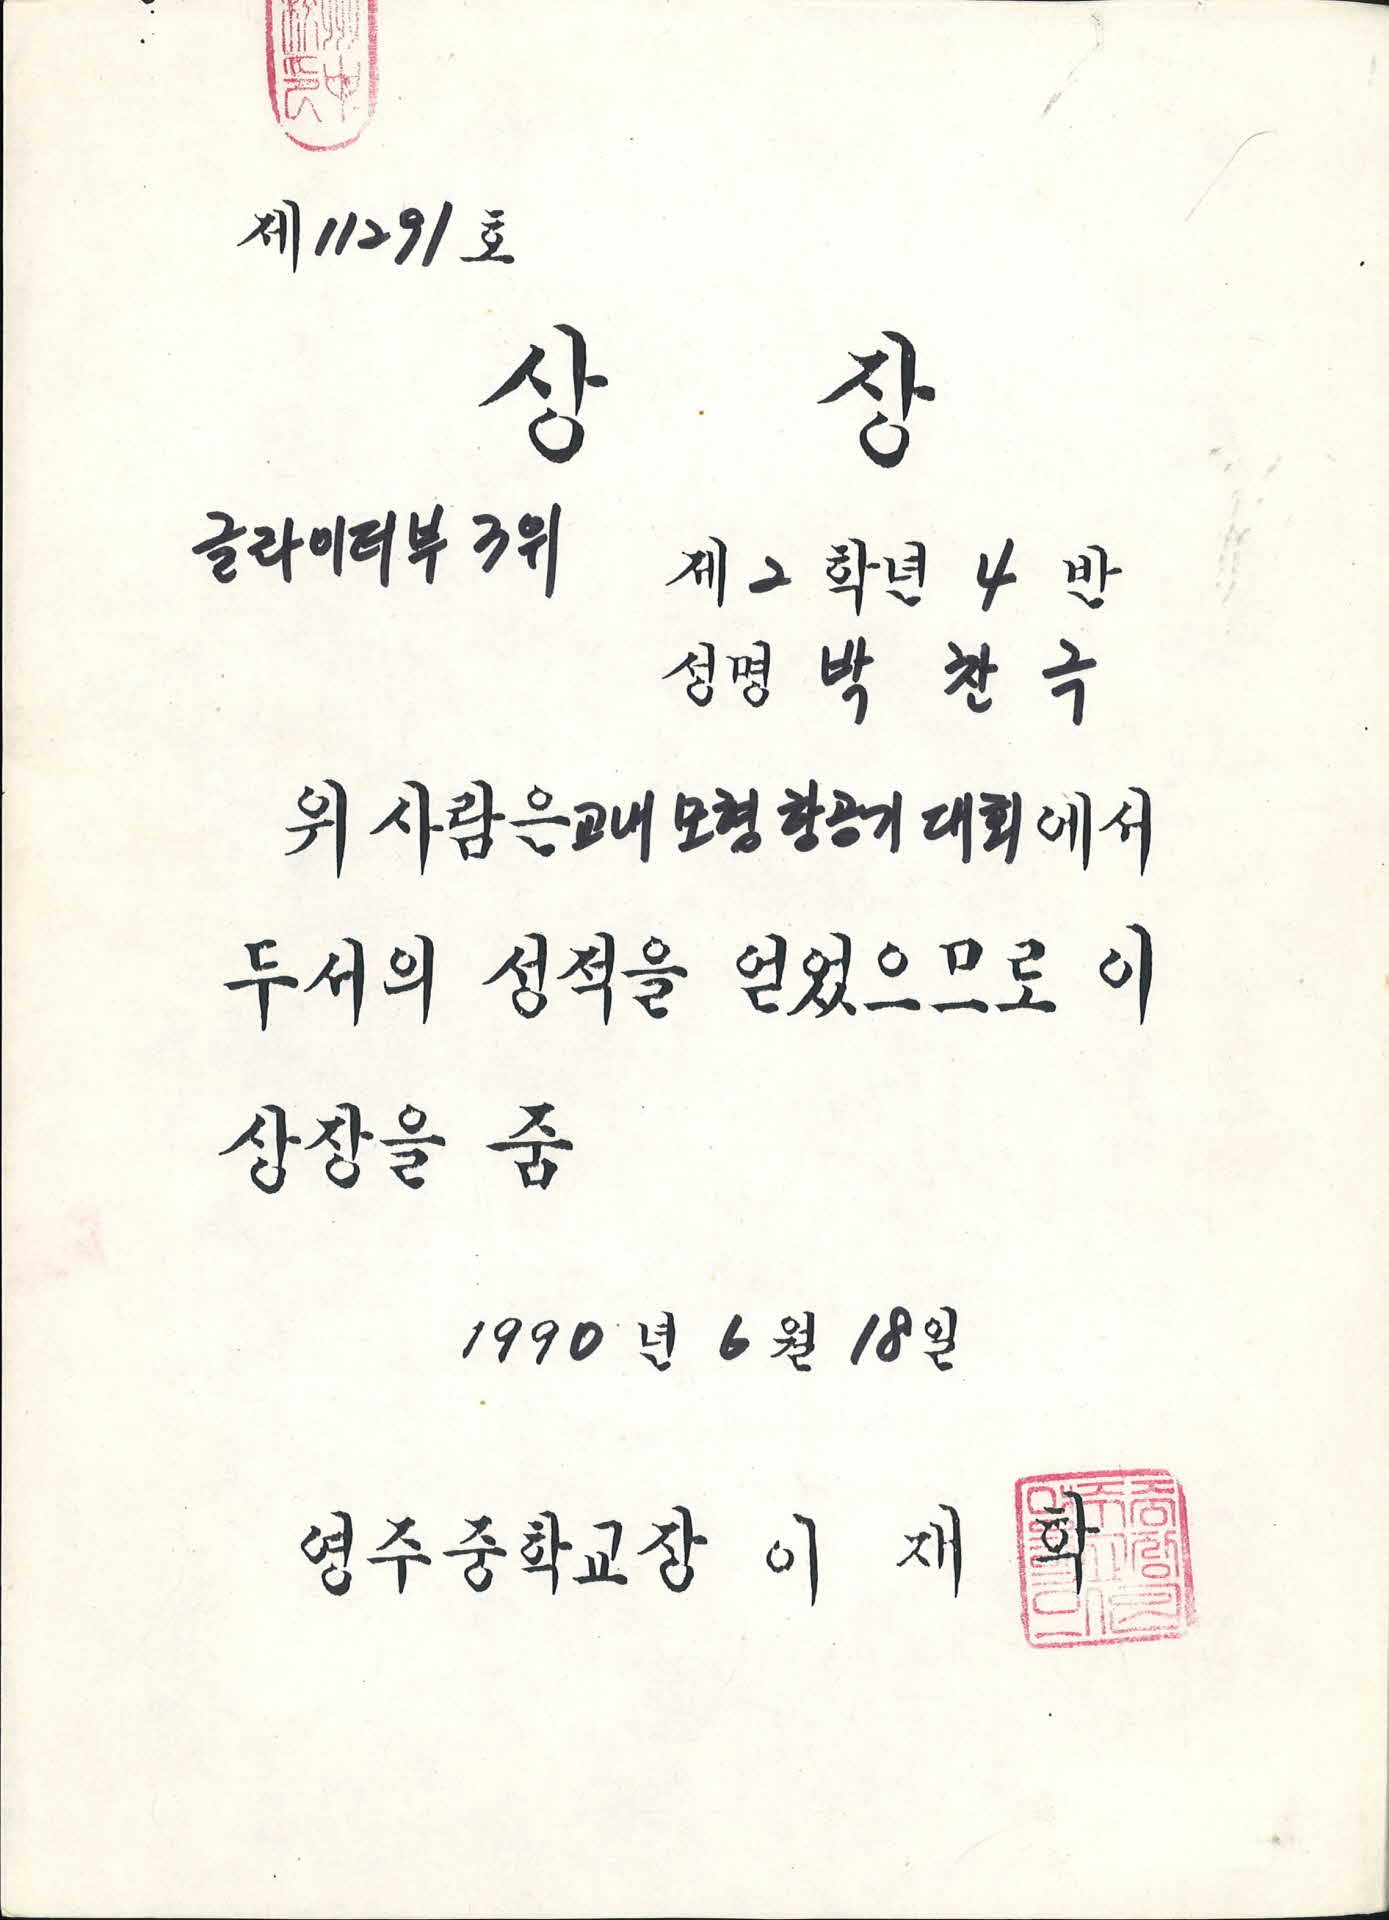 제11291호
상 장
글라이더부 3위
제2학년 4반
성명 박찬극
위 사람은 교내 모형 항공기 대회에서
두서의 성적을 얻었으므로 이
상장을 줌
1990년 6월 18일
영주중학교장 이재학